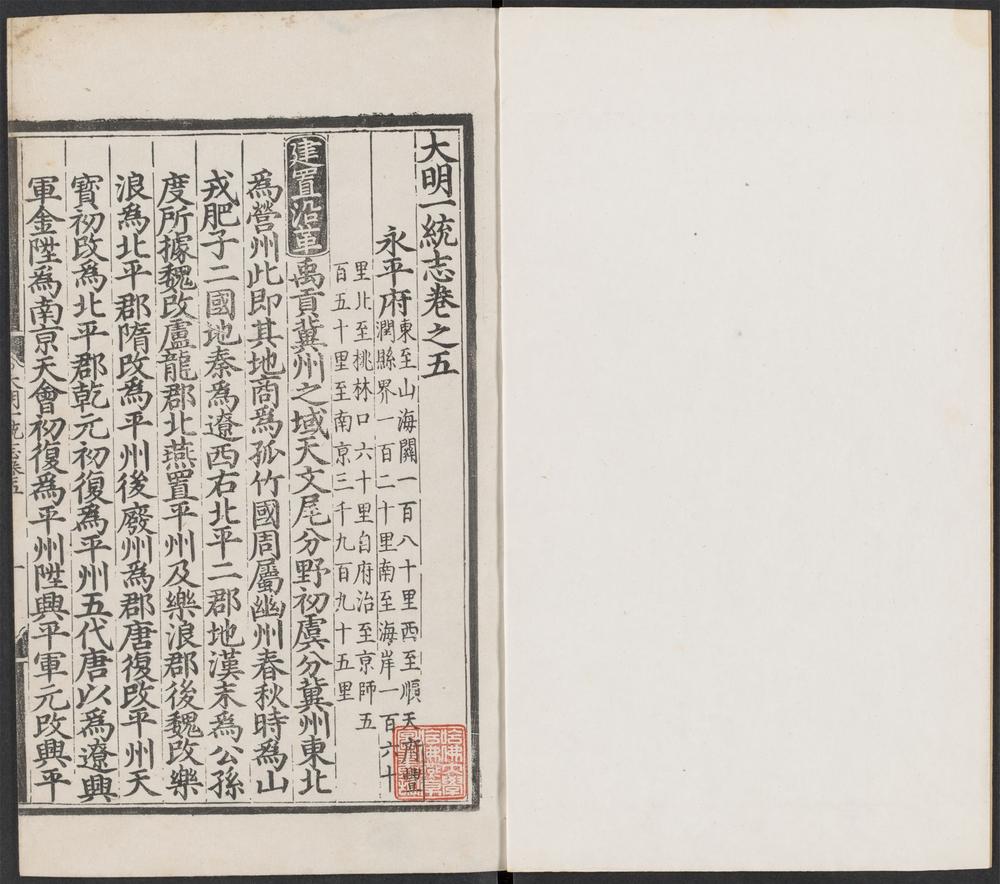 大明一統志卷之五
永平府東至山海關一百八十里西至順天府豐
潤縣界一百二十里南至海岸一百六十
里北至桃林口六十里自府治至京師五
百五十里至南京三千九百九十五里
建置沿革禹貢冀州之域天文尾分野初虞分冀州東北
爲營州此即其地商爲孤竹國周屬幽州春秋時爲山
戎肥子二國地秦爲遼西右北平二郡地漢末爲公孫
度所據魏改盧龍郡北燕置平州及樂浪郡後魏改樂
浪爲北平郡隋改爲平州後廢州爲郡唐復改平州天
寳初改爲北平郡乾元初復爲平州五代唐以爲遼興
軍金陞爲南京天會初復爲平州陞興平軍元改興平